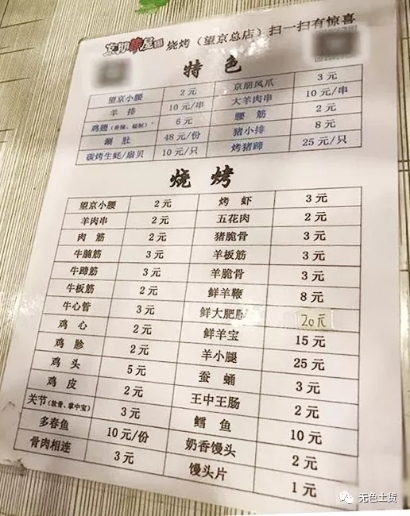 烧烤（望京总店）扫一扫有惊喜
特色
望京小腰 2元 京朋凤爪 3元
羊排 10元/串 大羊肉串 10元/串
鸡翅（香辣、秘制） 6元 腰筋 2元
涮肚 48元/份 猪小排 8元
碳烤生蚝/扇贝 10元/只 烤猪蹄 25元/只
烧烤
望京小腰 2元 烤虾 3元
羊肉串 2元 五花肉 2元
肉筋 2元 猪脆骨 3元
牛腩筋 3元 羊板筋 3元
牛蹄筋 3元 羊脆骨 3元
牛板筋 2元 鲜羊鞭 8元
牛心管 3元 鲜大肥 20元
鸡心 2元 鲜羊宝 15元
鸡胗 2元 羊小腿 25元
鸡头 5元 蚕蛹 3元
鸡皮 2元 王中王肠 2元
关节（软骨、掌中宝） 3元 鳕鱼 10元
多春鱼 10元/份 奶香馒头 2元
骨肉相连 3元 馒头片 1元
无色土货